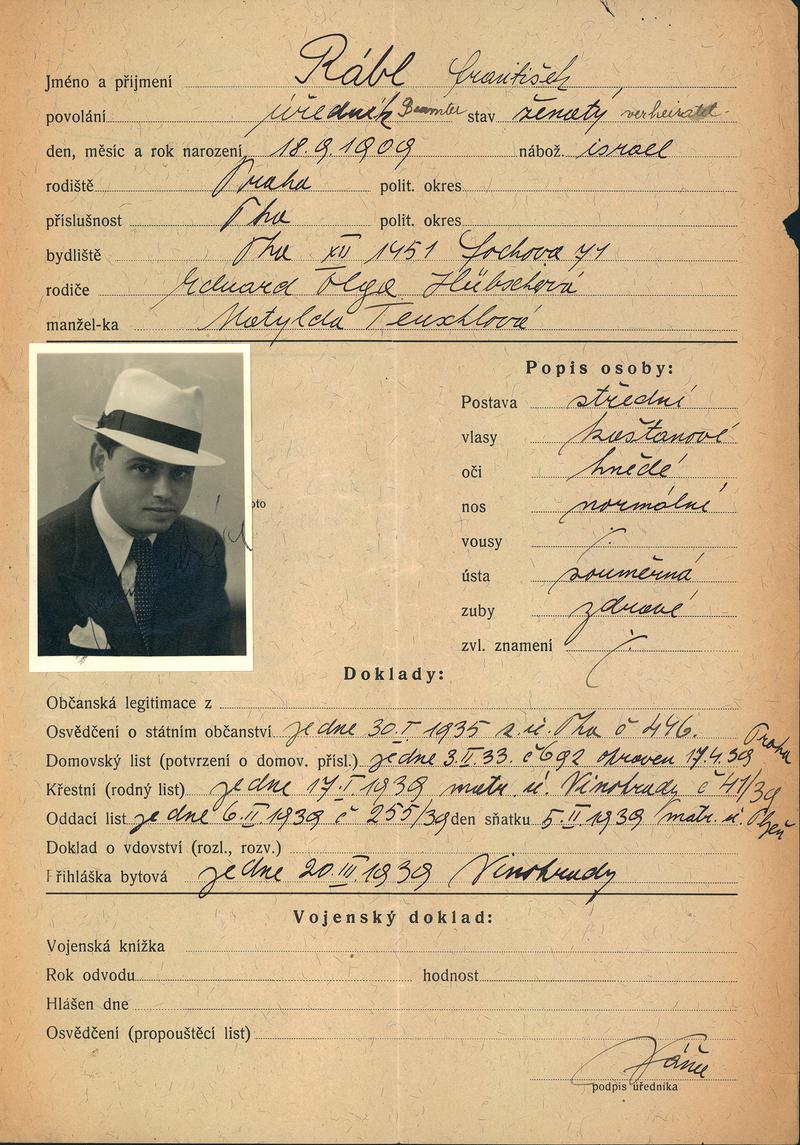 Jméno a přijmení Rábl František
povolání úředník Beamter stav ženatý verheiratet
den, měsíc a rok narození 18.9.1909 nábož. israel
rodiště Praha polit. okres
příslušnost Pha polit. okres
bydliště Pha XII 1451 Fochova 71
rodiče Eduard Olga Hübschová
manžel-ka Matylda Teuschlová
Popis osoby:
Postava střední
vlasy kaštanové
oči hnědé
oto
nos normální
vousy ·/.
ústa souměrná
zuby zdravé
zvl. znamení ·/.
Doklady:
Občanská legitimace z
Osvědčení o státním občanství ze dne 30.I 1935 z.ú. Pha č 446.
Domovský list (potvrzení o domov. přísl.) ze dne 3.II.33. č 692 opraven 17.4.39 Praha
Křestní (rodný list) ze dne 17.I 1939 matr. ú. Vinohrady č 41/39
Oddací list ze dne 6.II 1939 č 255/39 den sňatku 5.II.1939 matr. ú. Plzeň
Doklad o vdovství (rozl., rozv.)
Přihláška bytová ze dne 20.III.1939 Vinohrady
Vojenský doklad:
Vojenská knížka
Rok odvodu hodnost
Hlášen dne
Osvědčení (propouštěcí list)
podpis úředníka